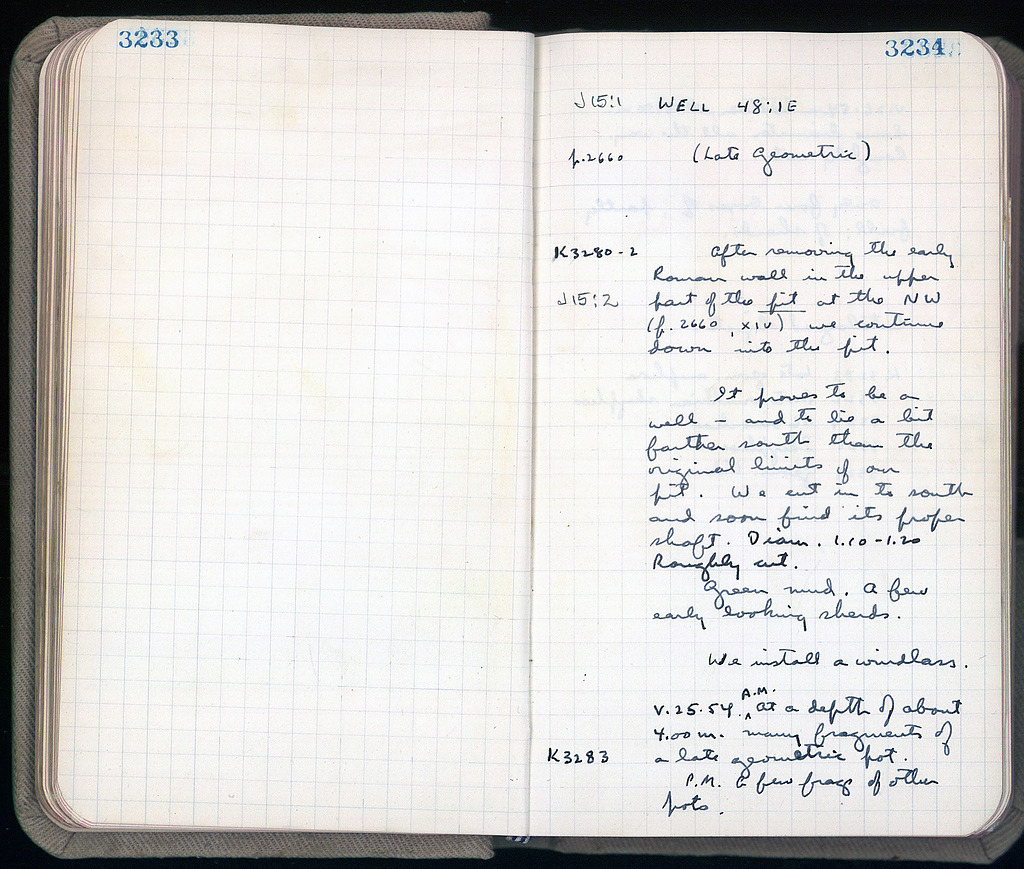 3233
3234
J 15:1 WELL 48:1E
p. 2660 (Late Geometric)
K3280-2 After removing the early
Roman wall in the upper
J 15:2 part of the pit at the NW
(p. 2660, XIV) we continue
down into the pit.
It proves to be a
well – and to lie a bit
farther south than the
original limits of our
pit. We cut in to south
and soon find its proper
shaft. Diam. 1.10-1.20
Roughly cut.
Green mud. A few
early looking sherds.
We install a windlass.
A.M.
V.25.54. ^ At a depth of about
4.00 m. many fragments of
K3283 a late geometric pot.
P.M. A few frags of other
pots.